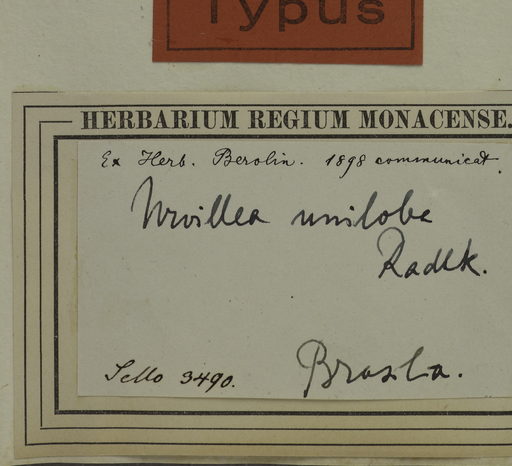 Typus
HERBARIUM REGIUM MONACENSE.
Ex Herb. Berolin. 1898 communicat.
Urvillea uniloba
Radlk.
Sello 3490.
Brasilia.